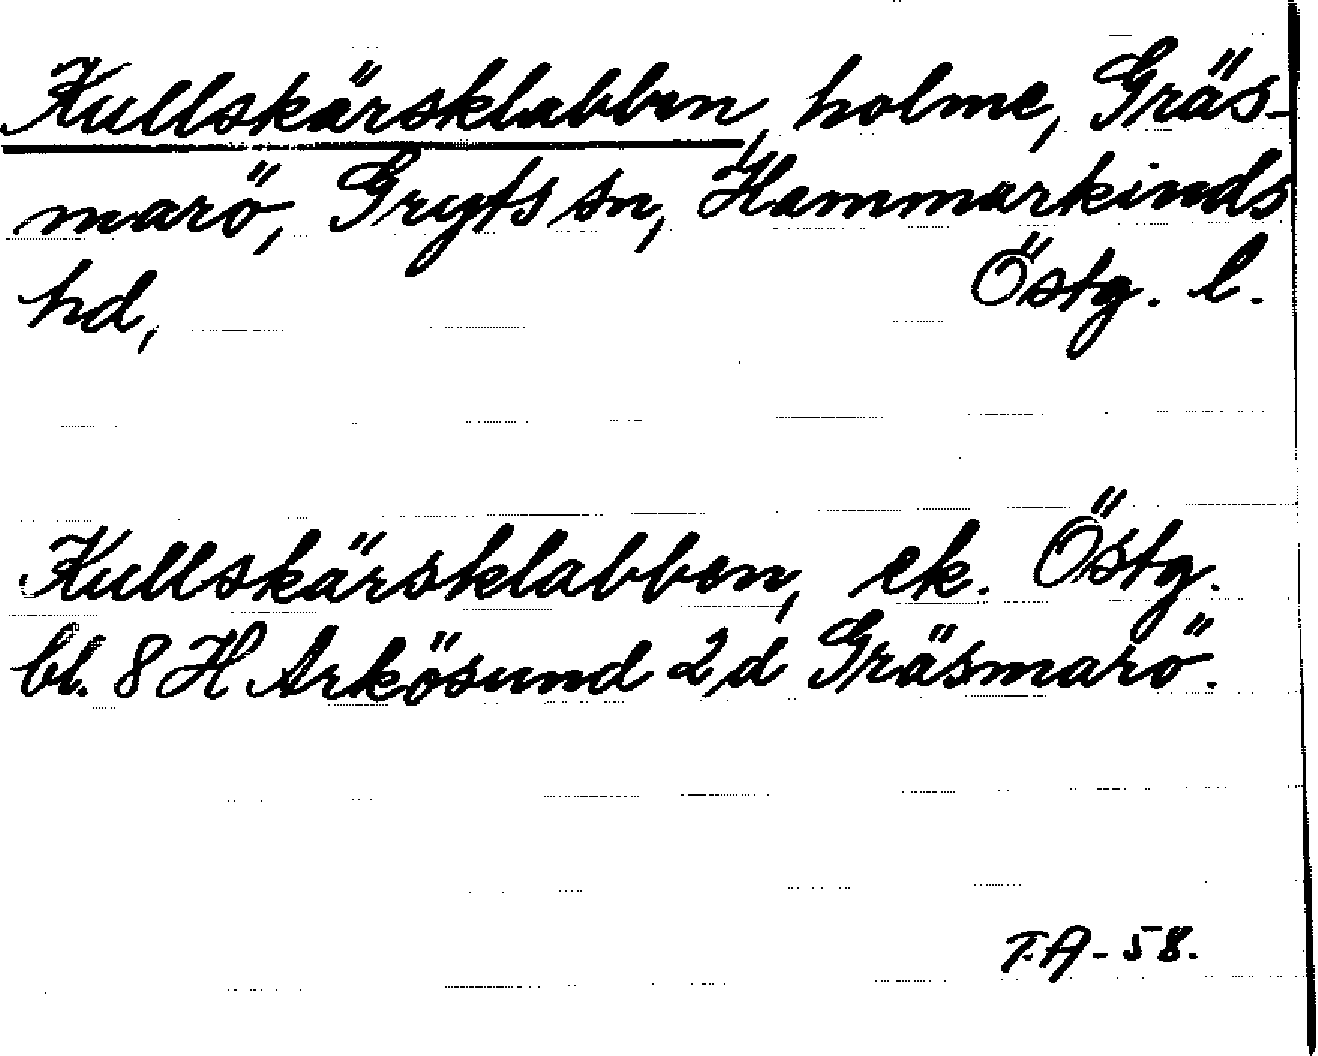 Kullskärsklabben, holme, Gräs-
marö, Gryts sn, Hammarkinds
hd, Östg. l.
Kullskärsklabben, ek. Östg.
bl. 8 H Arkösund 2d Gräsmarö.
T.A-58.